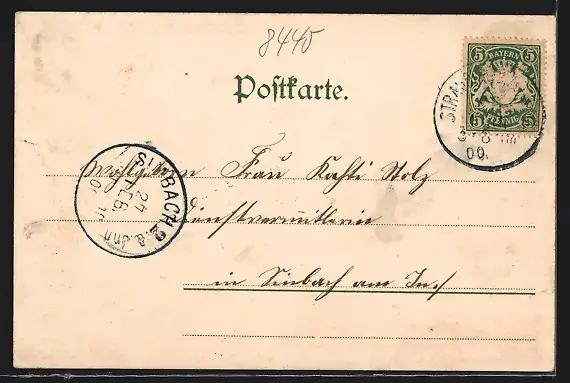 8440
Postkarte.
5 BAYERN 5
5 PFENNIG 5
STRA
00.
SIMBACH 2
a. Inn
Wohlgeboren Frau Kathi Stolz
Dienstvermittlerin
in Simbach am In./